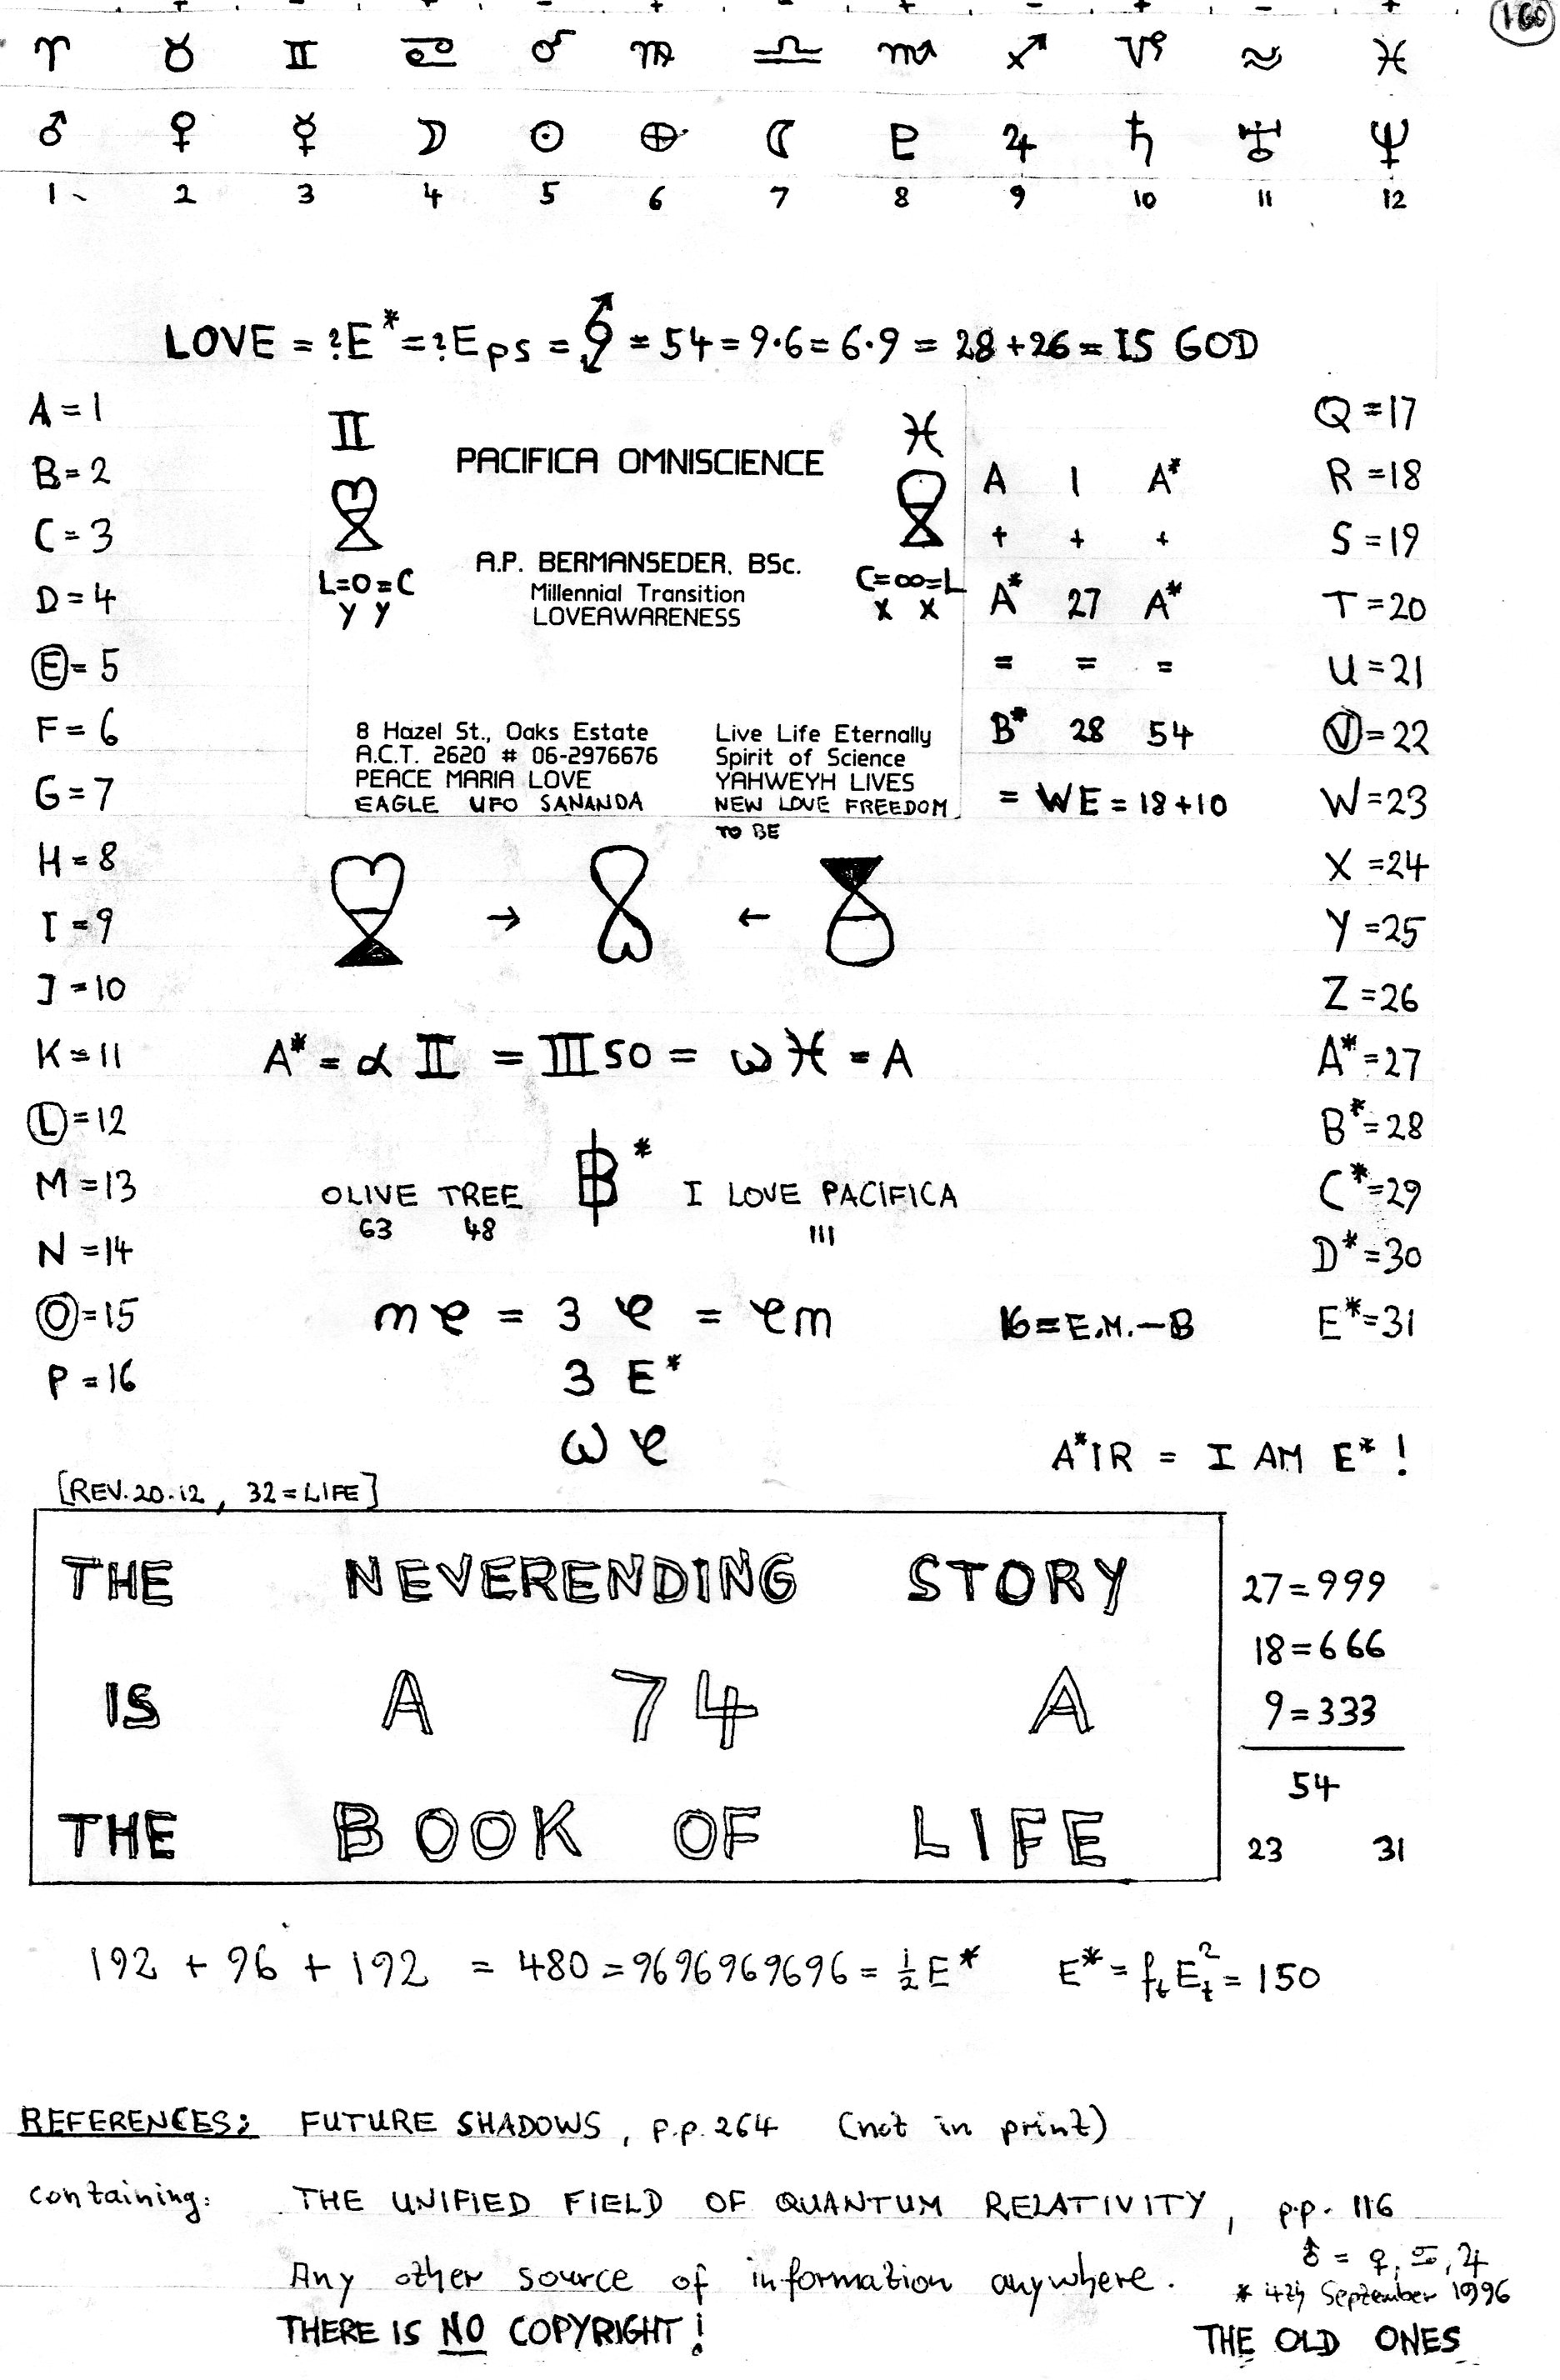 160
+ - + - + - + - + - +
♈ ♉ ♊ ♋ ♂ ♍ ♎ ♏ ♐ ♑ ♒ ♓
♂ ♀ ☿ ☽ ☉ ⊕ ☾ ♇ ♃ ♄ ♅ ♆
1 2 3 4 5 6 7 8 9 10 11 12
LOVE = ?E* = ?Eps = = 54 = 9·6 = 6·9 = 28+26 = IS GOD
A = 1
B = 2
C = 3
D = 4
E = 5
F = 6
G = 7
H = 8
I = 9
J = 10
K = 11
L = 12
M = 13
N = 14
O = 15
P = 16
♊ ♓
PACIFICA OMNISCIENCE
A.P. BERMANSEDER, BSc.
Millennial Transition
LOVEAWARENESS
L=O=C
Y Y
C=∞=L
X X
8 Hazel St., Oaks Estate
A.C.T. 2620 # 06-2976676
PEACE MARIA LOVE
EAGLE UFO SANANDA
Live Life Eternally
Spirit of Science
YAHWEYH LIVES
NEW LOVE FREEDOM
TO BE
A 1 A*
+ + +
A* 27 A*
= = =
B* 28 54
= WE = 18+10
Q = 17
R = 18
S = 19
T = 20
U = 21
V = 22
W = 23
X = 24
Y = 25
Z = 26
A* = 27
B* = 28
C* = 29
D* = 30
E* = 31
→ ←
A* = α ♊ = III SO = ω ♓ = A
OLIVE TREE B* I LOVE PACIFICA
63 48 111
me = 3 e = em
3 E*
ω e
16 = E.M. – B
A*IR = I AM E* !
[REV. 20.12, 32 = LIFE]
THE NEVERENDING STORY
IS A 74 A
THE BOOK OF LIFE
27 = 999
18 = 666
9 = 333
54
23 31
192 + 96 + 192 = 480 = 9696969696 = ½E* E* = ftEt² = 150
REFERENCES: FUTURE SHADOWS, p.p. 264 (not in print)
containing: THE UNIFIED FIELD OF QUANTUM RELATIVITY, p.p. 116
Any other source of information anywhere.
THERE IS NO COPYRIGHT!
= ♀, ♎, ♃
* 4th September 1996
THE OLD ONES